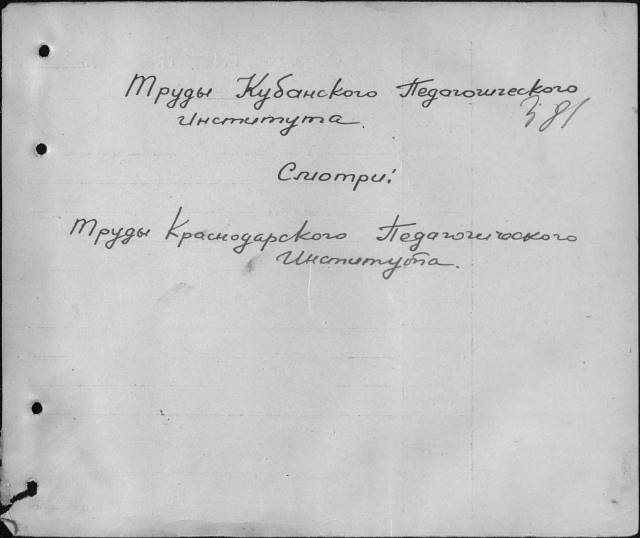 Труды Кубанского Педагогического
381
Института.
Смотри:
Труды Краснодарского Педагогического
Института.